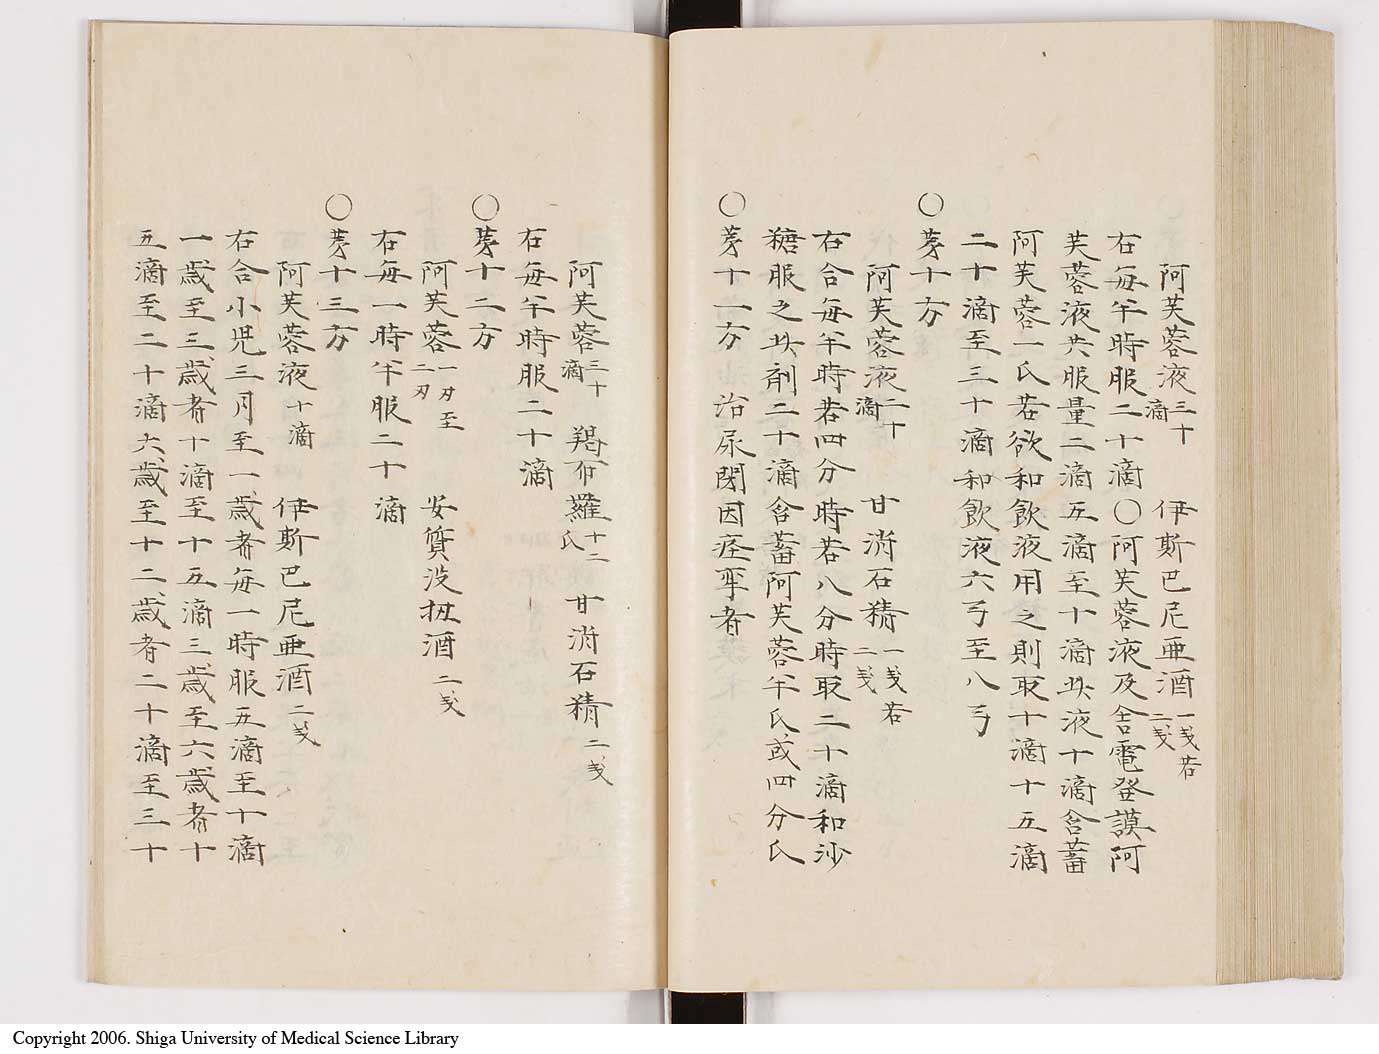 阿芙蓉液三十滴 伊斯巴尼亜酒一戔若二戔
右毎半時服二十滴〇阿芙蓉液及舎電登謨阿
芙蓉液共服量二滴五滴至十滴此液十滴含蓄
阿芙蓉一氏若欲和飲液用之則取十滴十五滴
二十滴至三十滴和飲液六弓至八弓
〇䒹十方
阿芙蓉液二十滴 甘消石精一戔若二戔
右合毎半時若四分時若八分時取二十滴和沙
糖服之此剤二十滴含蓄阿芙蓉半氏或四分氏
〇䒹十一方 治尿閉因痙挛者
阿芙蓉三十滴 羯布羅十二氏 甘消石精二戔
右毎半時服二十滴
〇䒹十二方
阿芙蓉一刃至二刃 安質没扭酒二戔
右毎一時半服二十滴
〇䒹十三方
阿芙蓉液十滴 伊斯巴尼亜酒二戔
右合小児三月至一歳者毎一時服五滴至十滴
一歳至三歳者十滴至十五滴三歳至六歳者十
五滴至二十滴六歳至十二歳者二十滴至三十
Copyright 2006. Shiga University of Medical Science Library